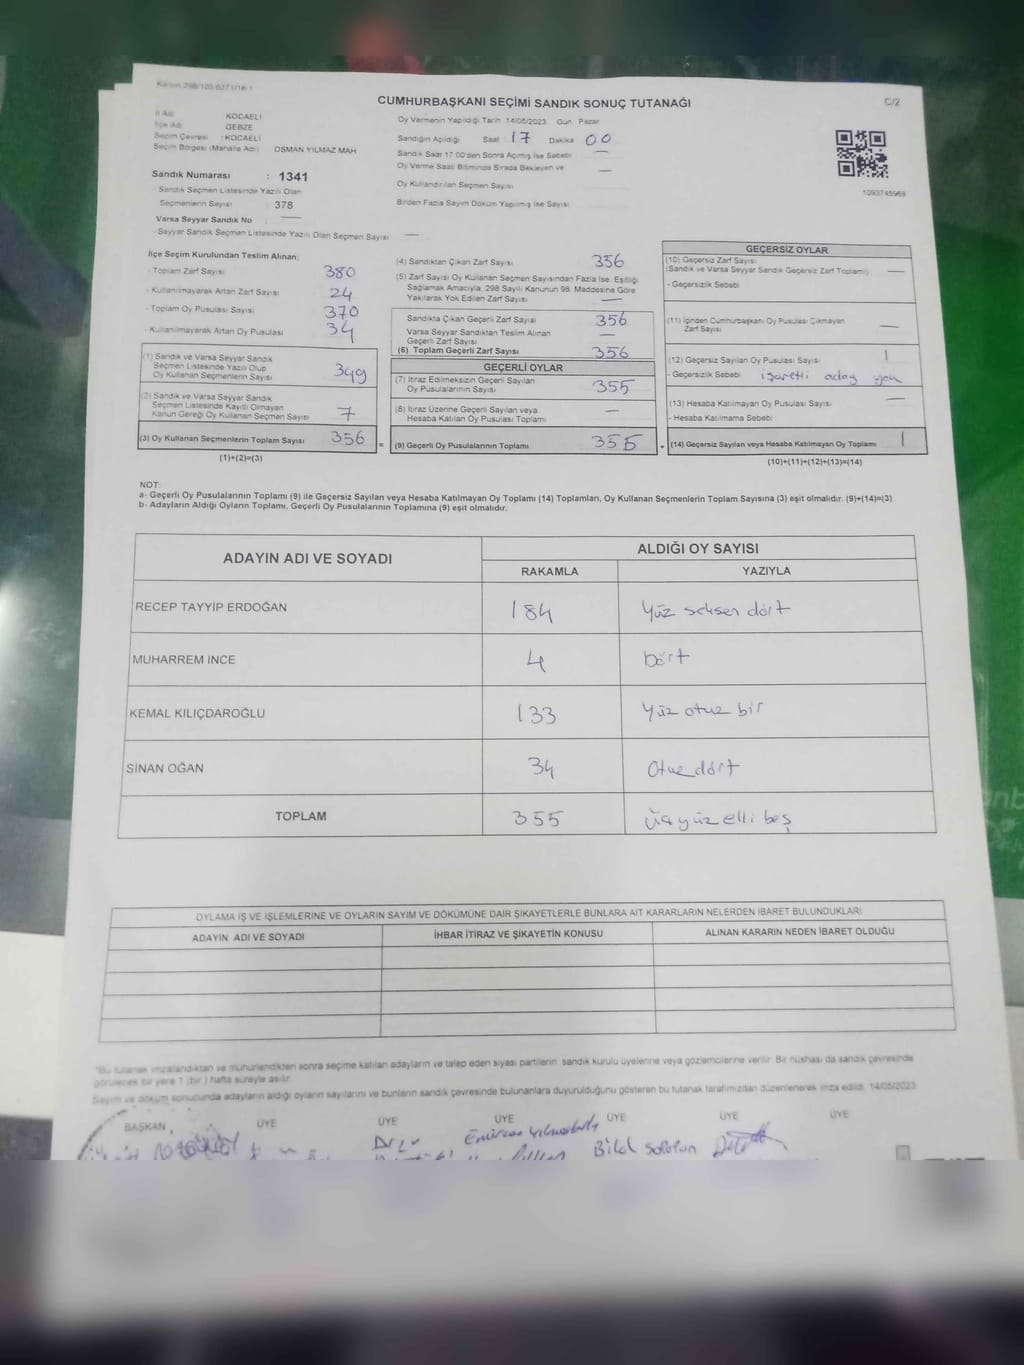 Kanun 298/105,6271/18-1
CUMHURBAŞKANI SEÇİMİ SANDIK SONUÇ TUTANAĞI
C/2
İl Adı KOCAELİ
İlçe Adı GEBZE
Seçim Çevresi : KOCAELİ
Seçim Bölgesi (Mahalle Adı) OSMAN YILMAZ MAH.
Sandık Numarası : 1341
- Sandık Seçmen Listesinde Yazılı Olan
Seçmenlerin Sayısı 378
Varsa Seyyar Sandık No —
- Seyyar Sandık Seçmen Listesinde Yazılı Olan Seçmen Sayısı —
Oy Vermenin Yapıldığı Tarih 14/05/2023 Gün Pazar
Sandığın Açıldığı Saat 17 Dakika 00
Sandık Saat 17:00'den Sonra Açılmış İse Sebebi —
Oy Verme Saati Bitiminde Sırada Bekleyen ve —
Oy Kullandırılan Seçmen Sayısı
Birden Fazla Sayım Döküm Yapılmış İse Sayısı
1093745968
İlçe Seçim Kurulundan Teslim Alınan:
- Toplam Zarf Sayısı 380
- Kullanılmayarak Artan Zarf Sayısı 24
- Toplam Oy Pusulası Sayısı 370
- Kullanılmayarak Artan Oy Pusulası 34
(1) Sandık ve Varsa Seyyar Sandık
Seçmen Listesinde Yazılı Olup
Oy Kullanan Seçmenlerin Sayısı 349
(2) Sandık ve Varsa Seyyar Sandık
Seçmen Listesinde Kayıtlı Olmayan
Kanun Gereği Oy Kullanan Seçmen Sayısı 7
(3) Oy Kullanan Seçmenlerin Toplam Sayısı 356 =
(1)+(2)=(3)
(4) Sandıktan Çıkan Zarf Sayısı 356
(5) Zarf Sayısı Oy Kullanan Seçmen Sayısından Fazla İse, Eşitliği
Sağlamak Amacıyla, 298 Sayılı Kanunun 98. Maddesine Göre
Yakılarak Yok Edilen Zarf Sayısı —
Sandıkta Çıkan Geçerli Zarf Sayısı 356
Varsa Seyyar Sandıktan Teslim Alınan —
Geçerli Zarf Sayısı
(6) Toplam Geçerli Zarf Sayısı 356
GEÇERLİ OYLAR
(7) İtiraz Edilmeksizin Geçerli Sayılan
Oy Pusulalarının Sayısı 355
(8) İtiraz Üzerine Geçerli Sayılan veya
Hesaba Katılan Oy Pusulası Toplamı —
(9) Geçerli Oy Pusulalarının Toplamı 355 +
GEÇERSİZ OYLAR
(10) Geçersiz Zarf Sayısı
(Sandık ve Varsa Seyyar Sandık Geçersiz Zarf Toplamı) —
- Geçersizlik Sebebi
(11) İçinden Cumhurbaşkanı Oy Pusulası Çıkmayan
Zarf Sayısı —
(12) Geçersiz Sayılan Oy Pusulası Sayısı 1
- Geçersizlik Sebebi işaretli aday yok
(13) Hesaba Katılmayan Oy Pusulası Sayısı —
- Hesaba Katılmama Sebebi
(14) Geçersiz Sayılan veya Hesaba Katılmayan Oy Toplamı 1
(10)+(11)+(12)+(13)=(14)
NOT:
a- Geçerli Oy Pusulalarının Toplamı (9) ile Geçersiz Sayılan veya Hesaba Katılmayan Oy Toplamı (14) Toplamları, Oy Kullanan Seçmenlerin Toplam Sayısına (3) eşit olmalıdır. (9)+(14)=(3)
b- Adayların Aldığı Oyların Toplamı, Geçerli Oy Pusulalarının Toplamına (9) eşit olmalıdır.
ADAYIN ADI VE SOYADI
ALDIĞI OY SAYISI
RAKAMLA YAZIYLA
RECEP TAYYİP ERDOĞAN 184 Yüz seksen dört
MUHARREM İNCE 4 Dört
KEMAL KILIÇDAROĞLU 133 Yüz otuz bir
SİNAN OĞAN 34 Otuz dört
TOPLAM 355 Üçyüz elli beş
OYLAMA İŞ VE İŞLEMLERİNE VE OYLARIN SAYIM VE DÖKÜMÜNE DAİR ŞİKAYETLERLE BUNLARA AİT KARARLARIN NELERDEN İBARET BULUNDUKLARI
ADAYIN ADI VE SOYADI İHBAR İTİRAZ VE ŞİKAYETİN KONUSU ALINAN KARARIN NEDEN İBARET OLDUĞU
"Bu tutanak imzalandıktan ve mühürlendikten sonra seçime katılan adayların ve talep eden siyasi partilerin sandık kurulu üyelerine veya gözlemcilerine verilir. Bir nüshası da sandık çevresinde
görülecek bir yere 1 (bir) hafta süreyle asılır.
Sayım ve döküm sonucunda adayların aldığı oyların sayılarını ve bunların sandık çevresinde bulunanlara duyurulduğunu gösteren bu tutanak tarafımızdan düzenlenerek imza edildi. 14/05/2023
BAŞKAN ÜYE ÜYE ÜYE ÜYE ÜYE ÜYE
Bilal